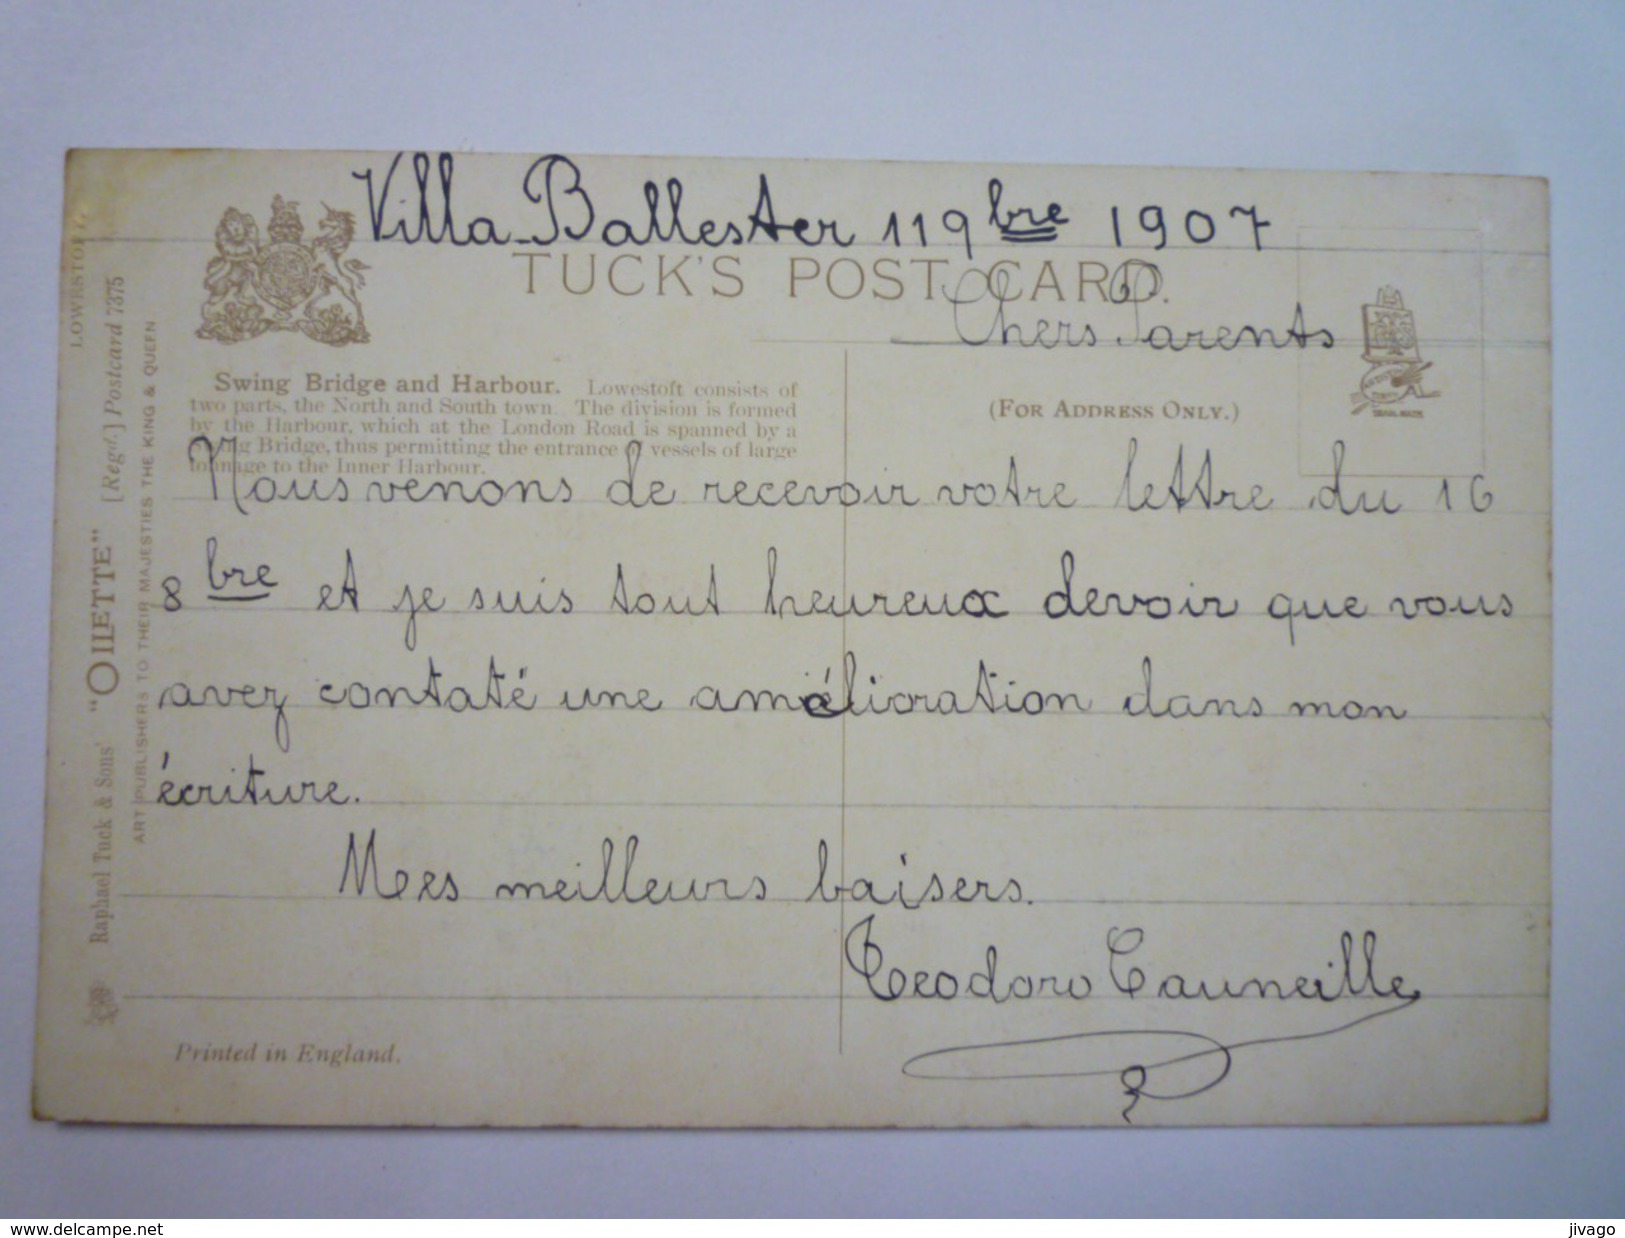 Villa-Ballester 11 9bre 1907
TUCK'S POST CARD.
Chers Parents
Swing Bridge and Harbour. Lowestoft consists of
two parts, the North and South town. The division is formed
by the Harbour, which at the London Road is spanned by a
Bridge, thus permitting the entrance of vessels of large
tonnage to the Inner Harbour.
(FOR ADDRESS ONLY.)
Nous venons de recevoir votre lettre du 16
8bre et je suis tout heureux devoir que vous
avez contaté une amélioration dans mon
écriture.
Mes meilleurs baisers.
Teodoro Tauneille
Printed in England.
LOWESTOFT.
Raphael Tuck & Sons' "OILETTE" [Regd.] Postcard 7375
ART PUBLISHERS TO THEIR MAJESTIES THE KING & QUEEN
www.delcampe.net
jivago